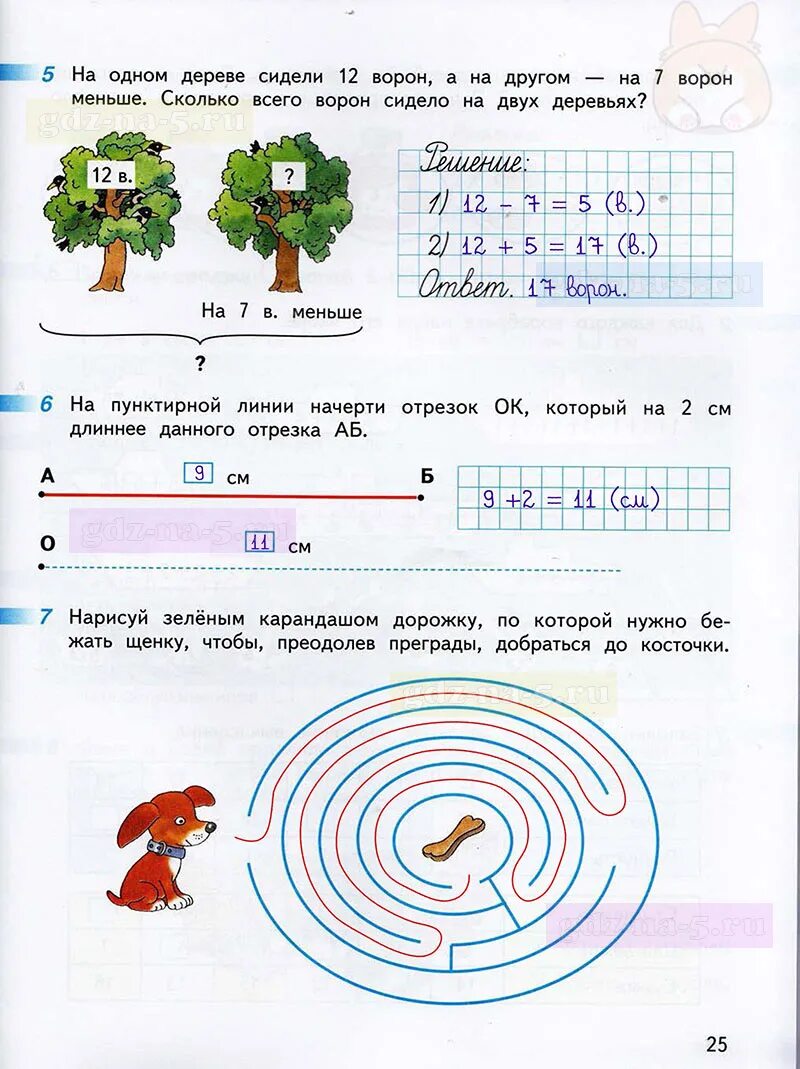 5 На одном дереве сидели 12 ворон, а на другом — на 7 ворон
меньше. Сколько всего ворон сидело на двух деревьях?
gdz-na-5.ru
12 в.
?
Решение:
1) 12 - 7 = 5 (в.)
2) 12 + 5 = 17 (в.)
Ответ. 17 ворон.
gdz-na-5.ru
На 7 в. меньше
?
6 На пунктирной линии начерти отрезок ОК, который на 2 см
длиннее данного отрезка АБ.
А 9 см Б
9 + 2 = 11 (см)
gdz-na-5.ru
О 11 см
7 Нарисуй зелёным карандашом дорожку, по которой нужно бе-
жать щенку, чтобы, преодолев преграды, добраться до косточки.
gdz-na-5.ru
gdz-na-5.ru
25